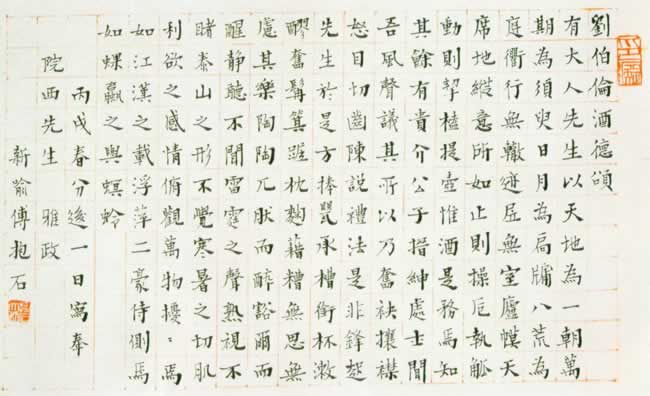 劉伯倫酒德頌
有大人先生以天地為一朝萬
期為須臾日月為扃牖八荒為
庭衢行無轍迹居無室廬幙天
席地縱意所如止則操卮執觚
動則挈榼提壺惟酒是務焉知
其餘有貴介公子搢紳處士聞
吾風聲議其所以乃奮袂攘襟
怒目切齒陳說禮法是非鋒起
先生於是方捧甖承槽銜杯漱
醪奮髯箕踞枕麴藉糟無思無
慮其樂陶陶兀肰而醉豁爾而
醒静聽不聞雷霆之聲熟視不
睹泰山之形不覺寒暑之切肌
利欲之感情俯觀萬物擾〻焉
如江漢之載浮萍二豪侍側焉
如蜾蠃之與螟蛉
丙戌春分後一日寫奉
院西先生 雅政
新喻傅抱石